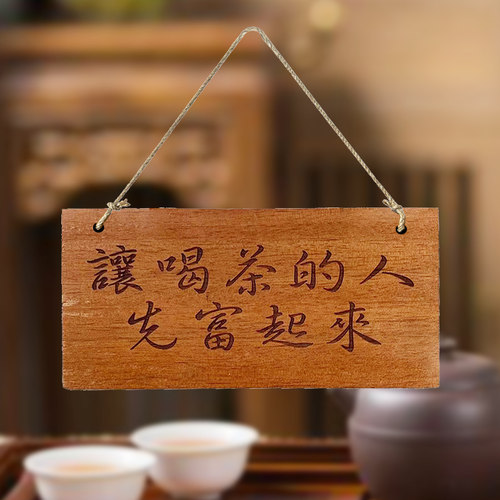 讓喝茶的人
先富起來